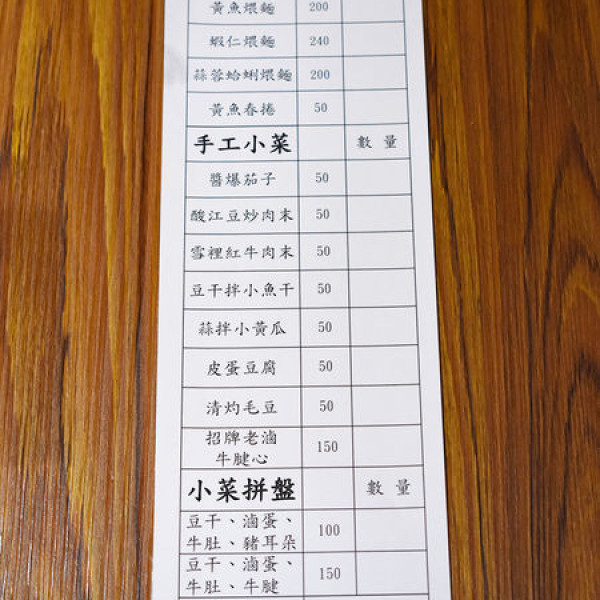 黃魚煨麵 200
蝦仁煨麵 240
蒜蓉蛤蜊煨麵 200
黃魚春捲 50
手工小菜 數量
醬爆茄子 50
酸江豆炒肉末 50
雪裡紅牛肉末 50
豆干拌小魚干 50
蒜拌小黃瓜 50
皮蛋豆腐 50
清灼毛豆 50
招牌老滷
牛腱心 150
小菜拼盤 數量
豆干、滷蛋、
牛肚、豬耳朵 100
豆干、滷蛋、
牛肚、牛腱 150